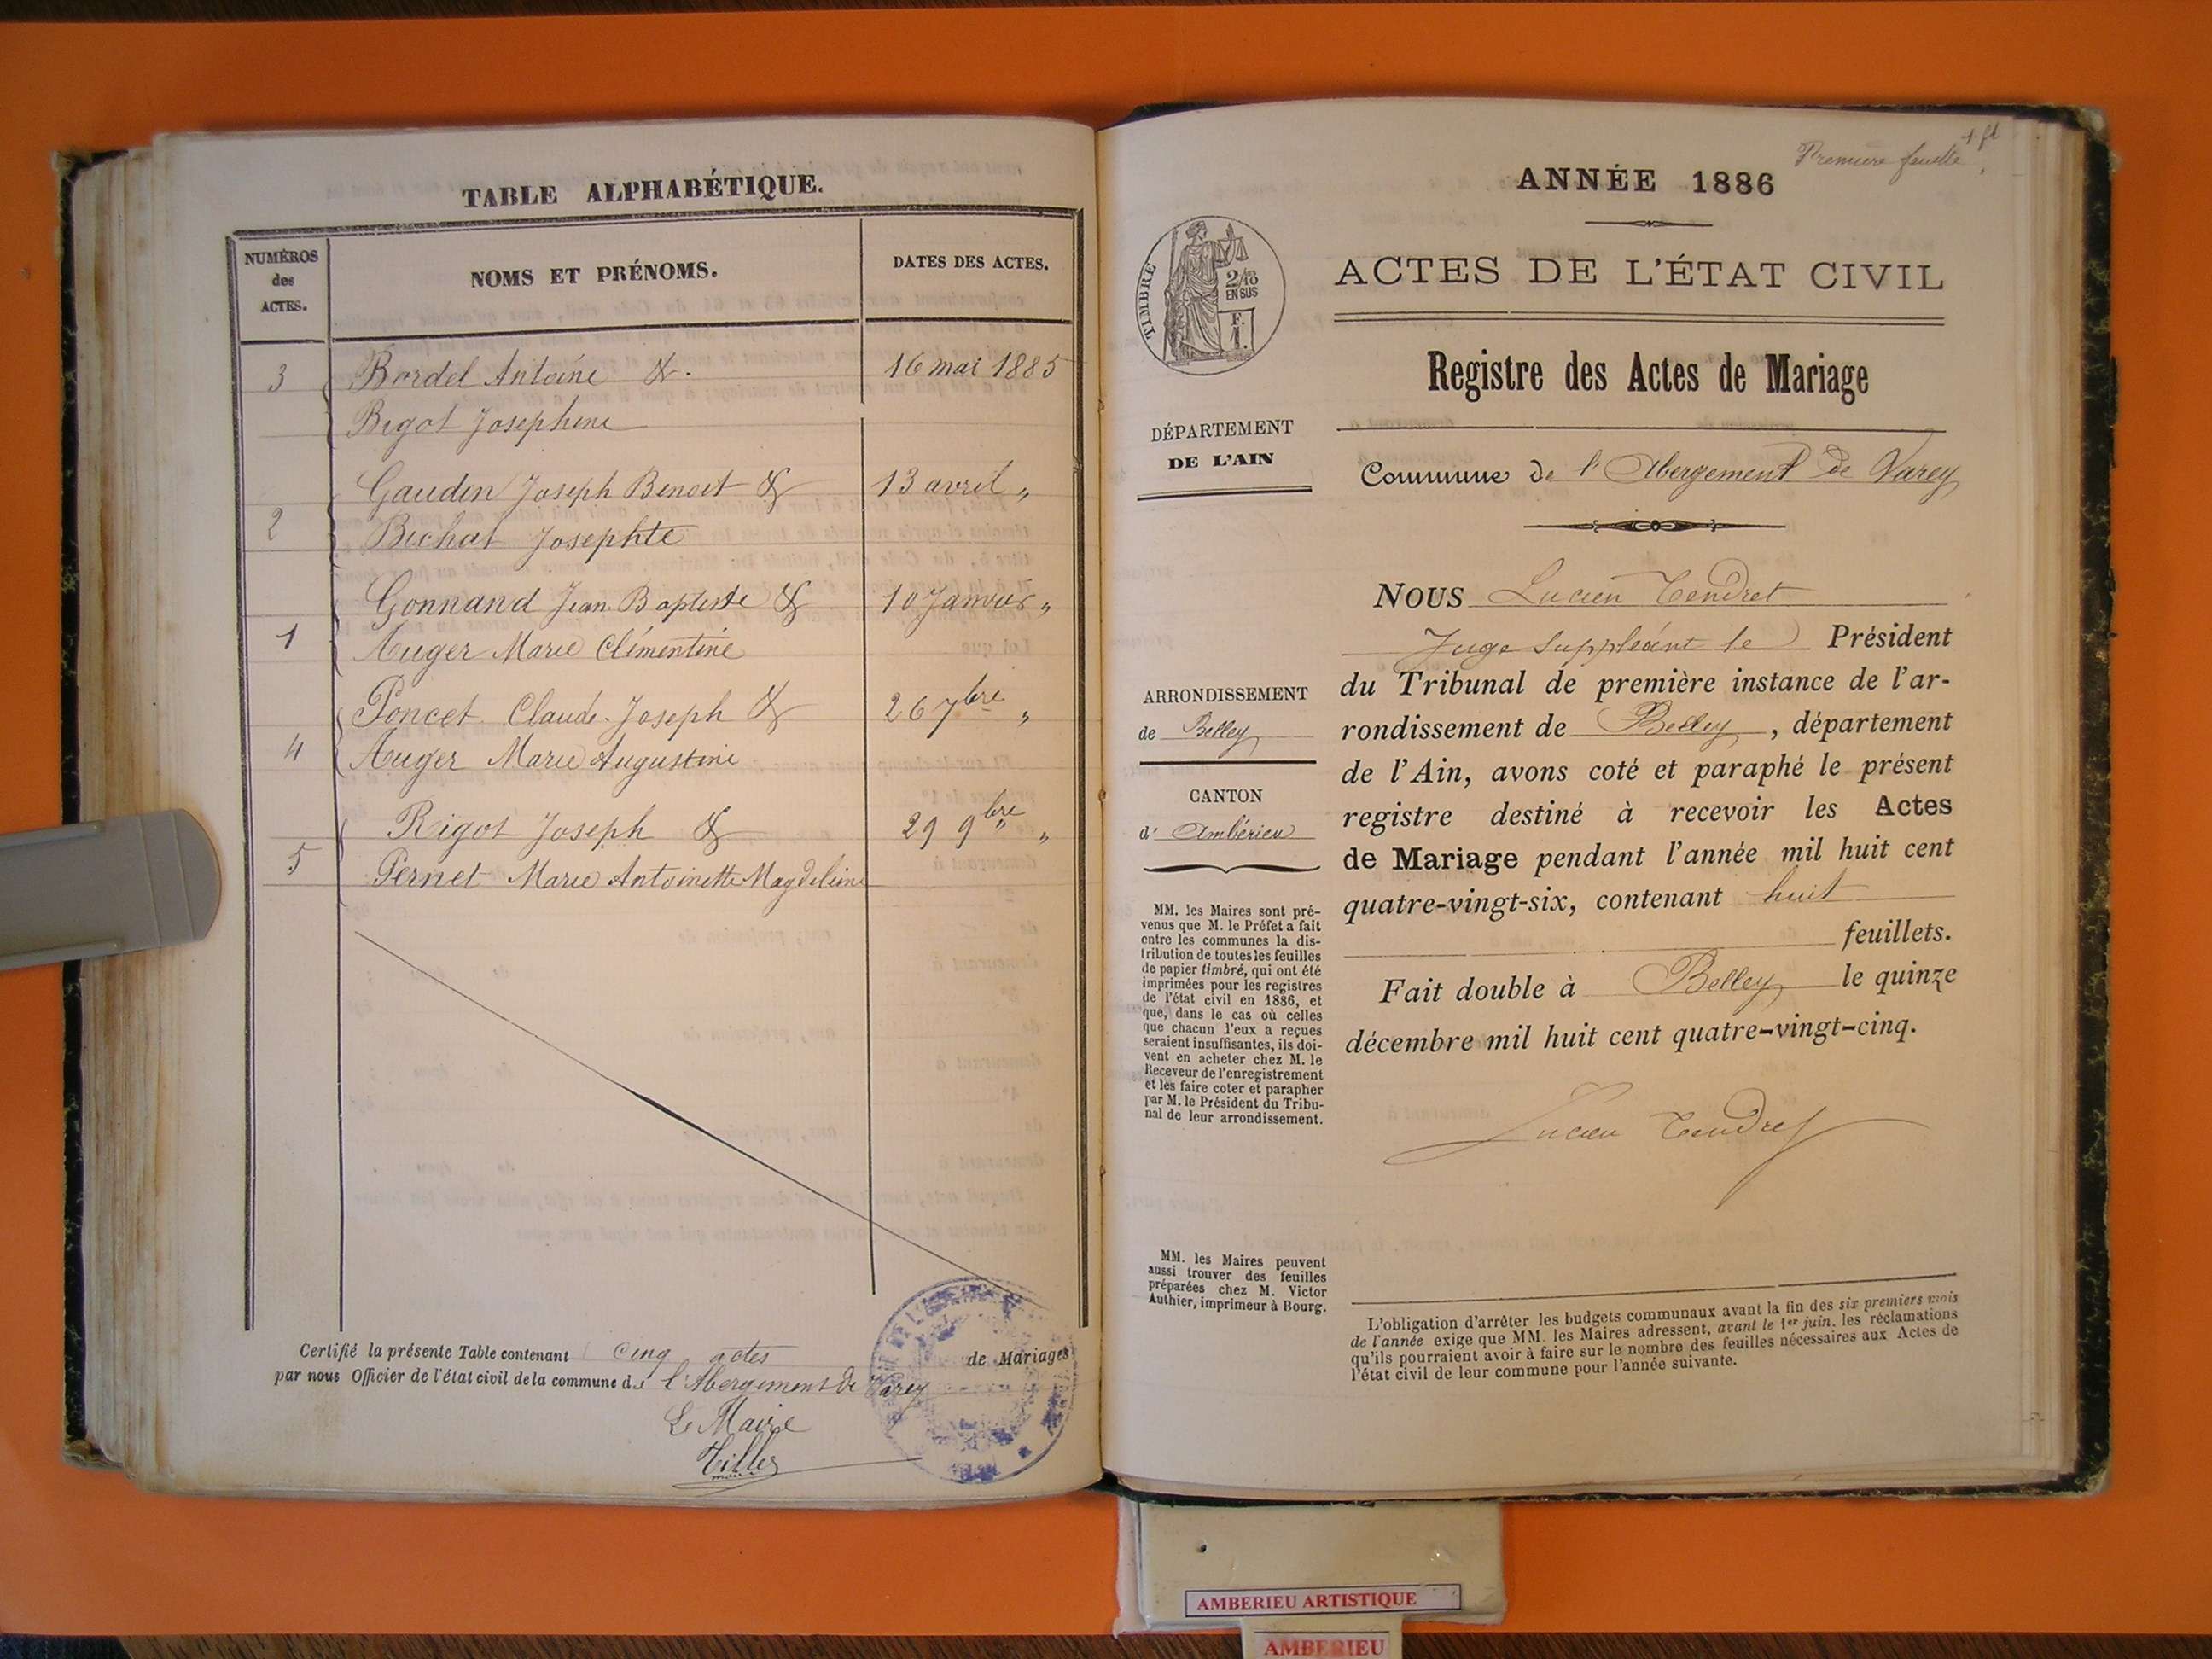 TABLE ALPHABÉTIQUE.
NUMÉROS
des
ACTES.
NOMS ET PRÉNOMS.
DATES DES ACTES.
3 Bordel Antoine &. 16 mai 1885
Bigot Josephine
Gaudin Joseph Benoit & 13 avril "
2 Bichat Josephte
Gonnand Jean Baptiste & 10 Janvier "
1 Auger Marie Clémentine
Poncet Claude Joseph & 26 7bre "
4 Auger Marie Augustine
Rigot Joseph & 29 9bre "
5 Pernet Marie Antoinette Magdeleine
Certifié la présente Table contenant cinq actes de Mariages
par nous Officier de l'état civil de la commune de l'Abergement de Varey
Le Maire
Tiller
Premiere feuille
1. ft
ANNÉE 1886
ACTES DE L'ÉTAT CIVIL
TIMBRE
2/10
EN SUS
F.
1.
Registre des Actes de Mariage
DÉPARTEMENT
DE L'AIN
Commune de l'Abergement de Varey
NOUS Lucien Tendret
Juge Suppléant le Président
du Tribunal de première instance de l'ar-
rondissement de Belley, département
de l'Ain, avons coté et paraphé le présent
registre destiné à recevoir les Actes
de Mariage pendant l'année mil huit cent
quatre-vingt-six, contenant huit
feuillets.
Fait double à Belley le quinze
décembre mil huit cent quatre-vingt-cinq.
Lucien Tendret
ARRONDISSEMENT
de Belley
CANTON
d' Ambérieu
MM. les Maires sont pré-
venus que M. le Préfet a fait
entre les communes la dis-
tribution de toutes les feuilles
de papier timbré, qui ont été
imprimées pour les registres
de l'état civil en 1886, et
que, dans le cas où celles
que chacun d'eux a reçues
seraient insuffisantes, ils doi-
vent en acheter chez M. le
Receveur de l'enregistrement
et les faire coter et parapher
par M. le Président du Tribu-
nal de leur arrondissement.
MM. les Maires peuvent
aussi trouver des feuilles
préparées chez M. Victor
Authier, imprimeur à Bourg.
L'obligation d'arrêter les budgets communaux avant la fin des six premiers mois
de l'année exige que MM. les Maires adressent, avant le 1er juin, les réclamations
qu'ils pourraient avoir à faire sur le nombre des feuilles nécessaires aux Actes de
l'état civil de leur commune pour l'année suivante.
AMBERIEU ARTISTIQUE
AMBERIEU